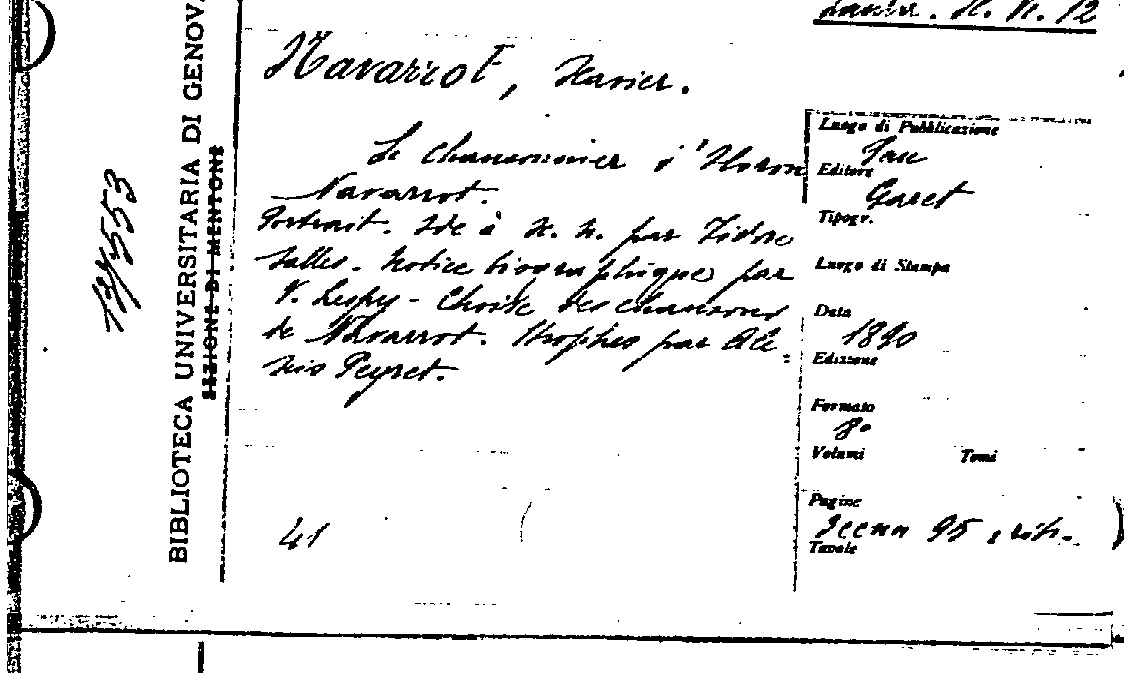 BIBLIOTECA UNIVERSITARIA DI GENOVA
SEZIONE DI MENTONE
Navarrot, Xavier.
Le Chansonnier d'Oloron
Navarrot.
Portrait. Ode à X. N. par Isidore
Salles. Notice biographique par
V. Lespy - Choix des chansons
de Navarrot. Strophes par Ale-
xis Peyret.
41
Luogo di Pubblicazione
Pau
Editore
Garet
Tipogr.
Luogo di Stampa
Data
1890
Edizione
Formato
8°
Volumi Tomi
Pagine
95
Tavole